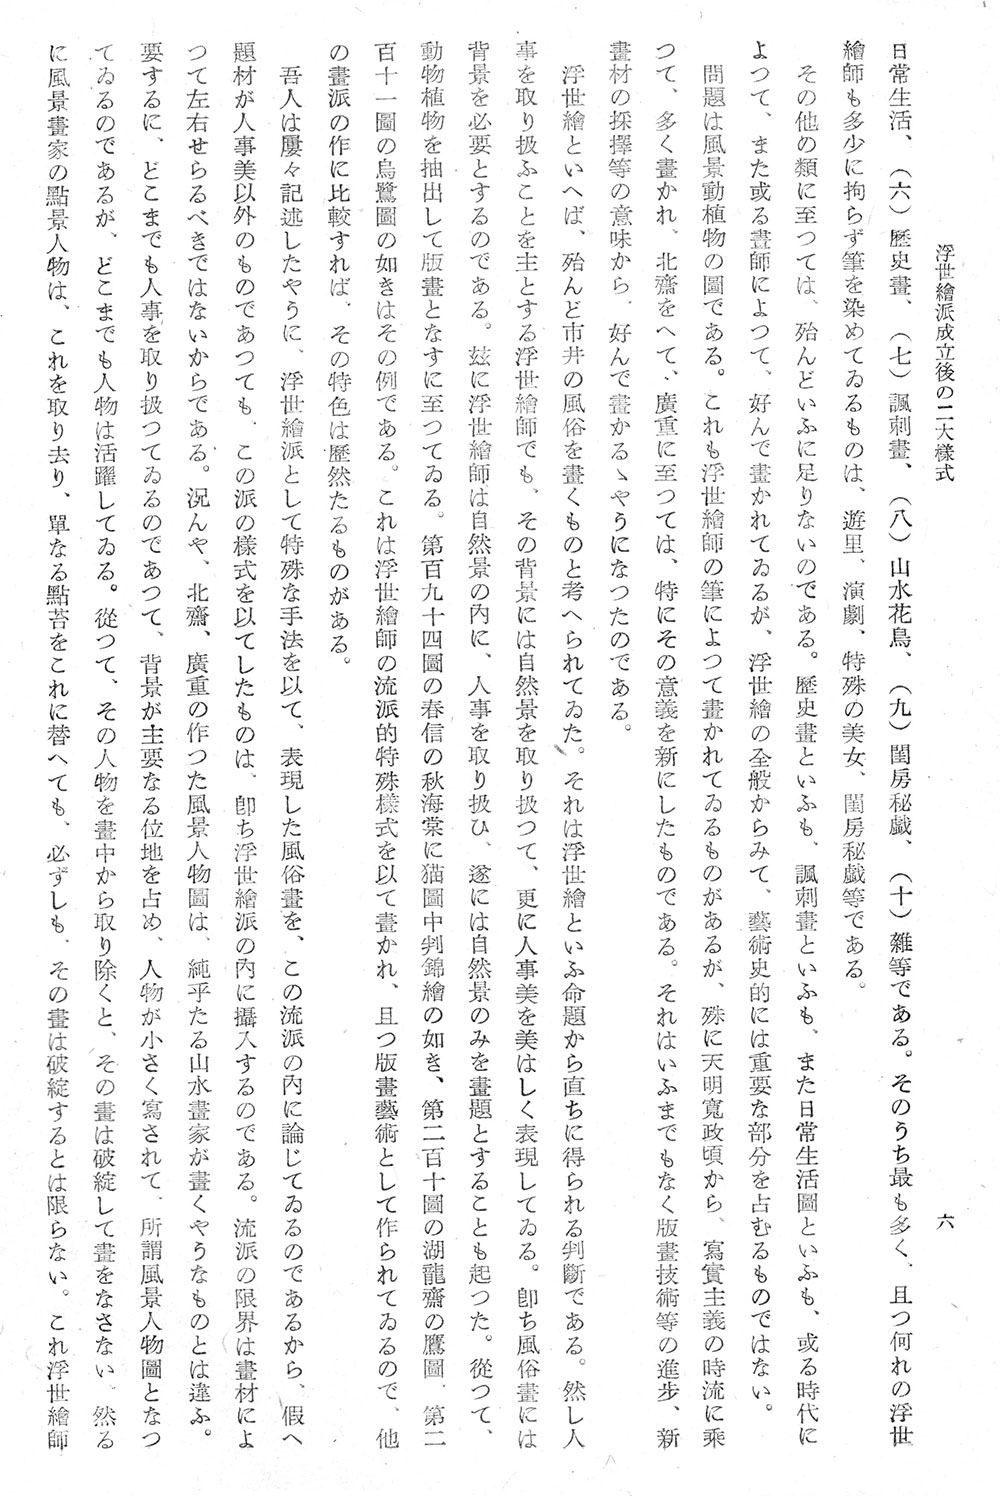 浮世繪派成立後の二大樣式
六
日常生活、（六）歷史畫、（七）諷刺畫、（八）山水花鳥、（九）閨房秘戲、（十）雜等である。そのうち最も多く、且つ何れの浮世
繪師も多少に拘らず筆を染めてゐるものは、遊里、演劇、特殊の美女、閨房秘戲等である。
その他の類に至つては、殆んどいふに足りないのである。歷史畫といふも、諷刺畫といふも、また日常生活圖といふも、或る時代に
よつて、また或る畫師によつて、好んで畫かれてゐるが、浮世繪の全般からみて、藝術史的には重要な部分を占むるものではない。
問題は風景動植物の圖である。これも浮世繪師の筆によつて畫かれてゐるものがあるが、殊に天明寬政頃から、寫實主義の時流に乘
つて、多く畫かれ、北齋をへて、廣重に至つては、特にその意義を新にしたものである。それはいふまでもなく版畫技術等の進步、新
畫材の採擇等の意味から、好んで畫かるゝやうになつたのである。
浮世繪といへば、殆んど市井の風俗を畫くものと考へられてゐた。それは浮世繪といふ命題から直ちに得られる判斷である。然し人
事を取り扱ふことを主とする浮世繪師でも、その背景には自然景を取り扱つて、更に人事美を美はしく表現してゐる。卽ち風俗畫には
背景を必要とするのである。玆に浮世繪師は自然景の內に、人事を取り扱ひ、遂には自然景のみを畫題とすることも起つた。從つて、
動物植物を抽出して版畫となすに至つてゐる。第百九十四圖の春信の秋海棠に猫圖中判錦繪の如き、第二百十圖の湖龍齋の鷹圖、第二
百十一圖の烏鷺圖の如きはその例である。これは浮世繪師の流派的特殊樣式を以て畫かれ、且つ版畫藝術として作られてゐるので、他
の畫派の作に比較すれば、その特色は歷然たるものがある。
吾人は屢々記述したやうに、浮世繪派として特殊な手法を以て、表現した風俗畫を、この流派の內に論じてゐるのであるから、假へ
題材が人事美以外のものであつても、この派の樣式を以てしたものは、卽ち浮世繪派の內に攝入するのである。流派の限界は畫材によ
つて左右せらるべきではないからである。況んや、北齋、廣重の作つた風景人物圖は、純乎たる山水畫家が畫くやうなものとは違ふ。
要するに、どこまでも人事を取り扱つてゐるのであつて、背景が主要なる位地を占め、人物が小さく寫されて、所謂風景人物圖となつ
てゐるのであるが、どこまでも人物は活躍してゐる。從つて、その人物を畫中から取り除くと、その畫は破綻して畫をなさない。然る
に風景畫家の點景人物は、これを取り去り、單なる點苔をこれに替へても、必ずしも、その畫は破綻するとは限らない。これ浮世繪師